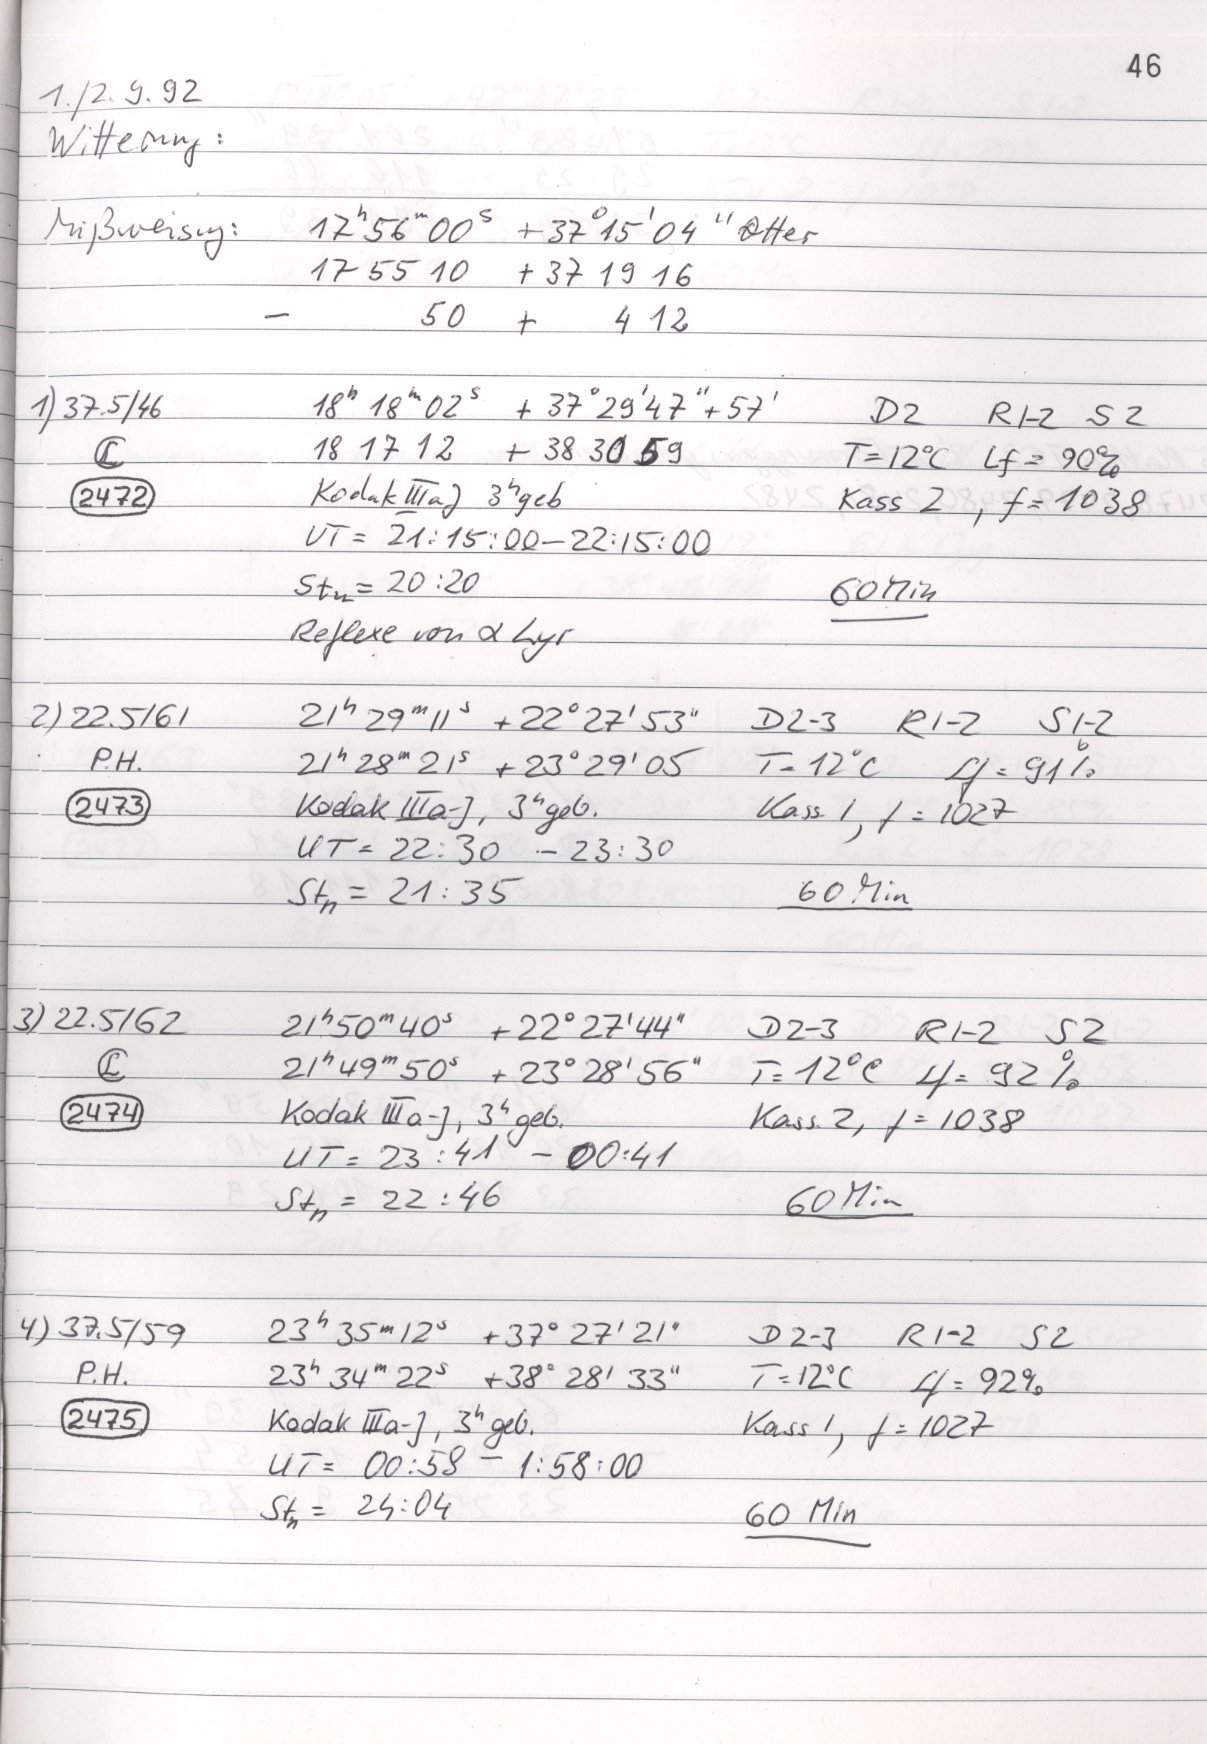 46
1./2.9.92
Witterung:
Mißweisung: 17ʰ56ᵐ00ˢ +37°15'04" Otter
17 55 10 +37 19 16
- 50 + 4 12
1) 37.5/46 18ʰ 18ᵐ 02ˢ +37°29'47" +57' D2 R1-2 S2
18 17 12 +38 30 59 T=12°C Lf=90%
2472 Kodak IIIaJ 3ʰ geb Kass 2, f=1038
UT= 21:15:00-22:15:00
Stₙ= 20:20 60 Min
Reflexe von α Lyr
2) 22.5/61 21ʰ 29ᵐ 11ˢ +22°27'53" D2-3 R1-2 S1-2
P.H. 21ʰ 28ᵐ 21ˢ +23°29'05 T=12°C Lf=91%
2473 Kodak IIIa-J, 3ʰ geb. Kass. 1, f=1027
UT= 22:30 - 23:30
Stₙ= 21:35 60 Min
3) 22.5/62 21ʰ50ᵐ40ˢ +22°27'44" D2-3 R1-2 S2
21ʰ49ᵐ50ˢ +23°28'56" T=12°C Lf=92%
2474 Kodak IIIa-J, 3ʰ geb. Kass. 2, f=1038
UT= 23:41 - 00:41
Stₙ = 22:46 60 Min
4) 37.5/59 23ʰ 35ᵐ12ˢ +37°27'21" D2-3 R1-2 S2
P.H. 23ʰ 34ᵐ 22ˢ +38°28'33" T=12°C Lf=92%
2475 Kodak IIIa-J, 3ʰ geb. Kass 1, f=1027
UT= 00:58 - 1:58:00
Stₙ= 24:04 60 Min